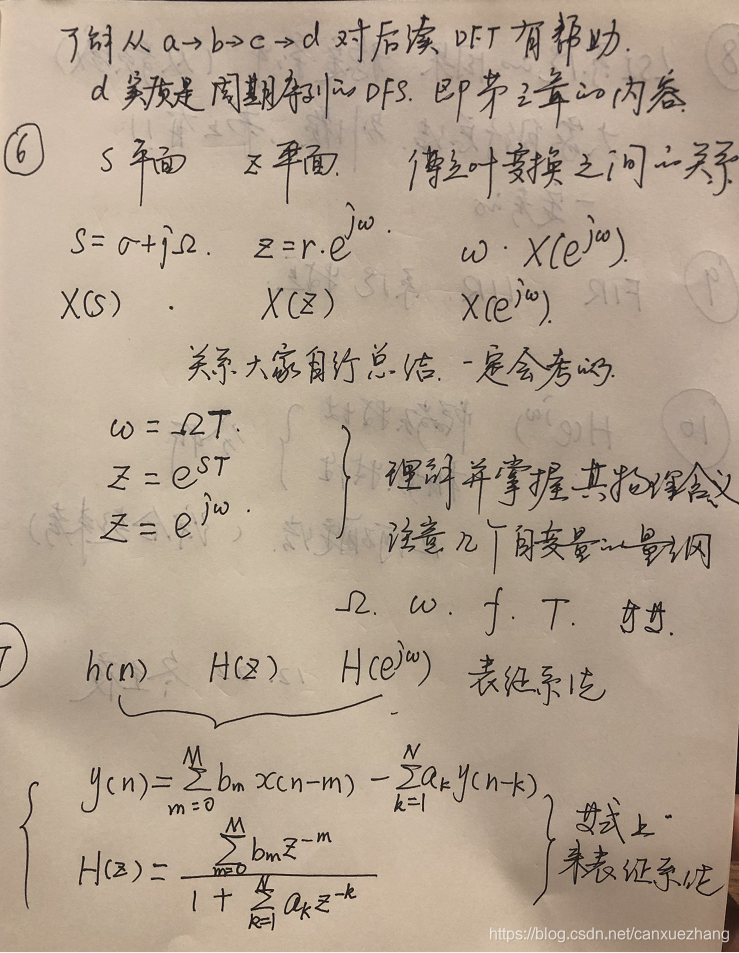 了解从 a→b→c→d 对后续 DFT 有帮助.
d 实质是周期序列的 DFS. 即第三章的内容.
⑥ S平面 z平面. 傅立叶变换之间的关系
S=σ+jΩ. z=r·e^{jω}. ω · X(e^{jω}).
X(s) · X(z) X(e^{jω}).
关系大家自行总结. 一定会考的.
ω = ΩT.
z = e^{sT} 理解并掌握其物理含义
z = e^{jω}. 注意几个自变量的量纲
Ω. ω. f. T.
h(n) H(z) H(e^{jω}) 表征系统
y(n)=\sum_{m=0}^{M} b_m x(n-m) - \sum_{k=1}^{N} a_k y(n-k)
H(z)=\frac{\sum_{m=0}^{M} b_m z^{-m}}{1+\sum_{k=1}^{N} a_k z^{-k}}
式上
来表征系统
https://blog.csdn.net/canxuezhang